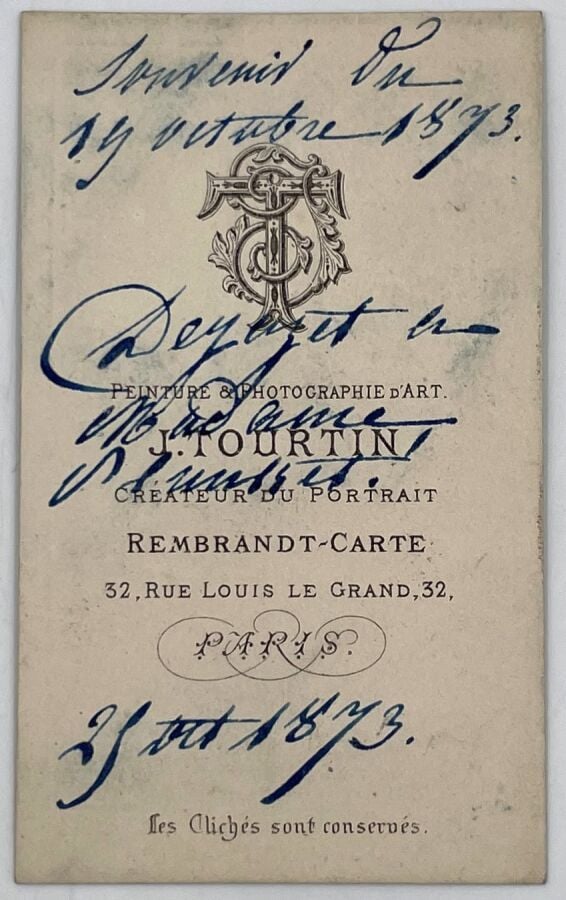 Souvenir Du
19 octobre 1873.
Dejazet a
PEINTURE & PHOTOGRAPHIE D'ART.
Madame
J. TOURTIN
CRÉATEUR DU PORTRAIT
REMBRANDT-CARTE
32, RUE LOUIS LE GRAND, 32,
PARIS.
25 oct 1873.
Les Clichés sont conservés.